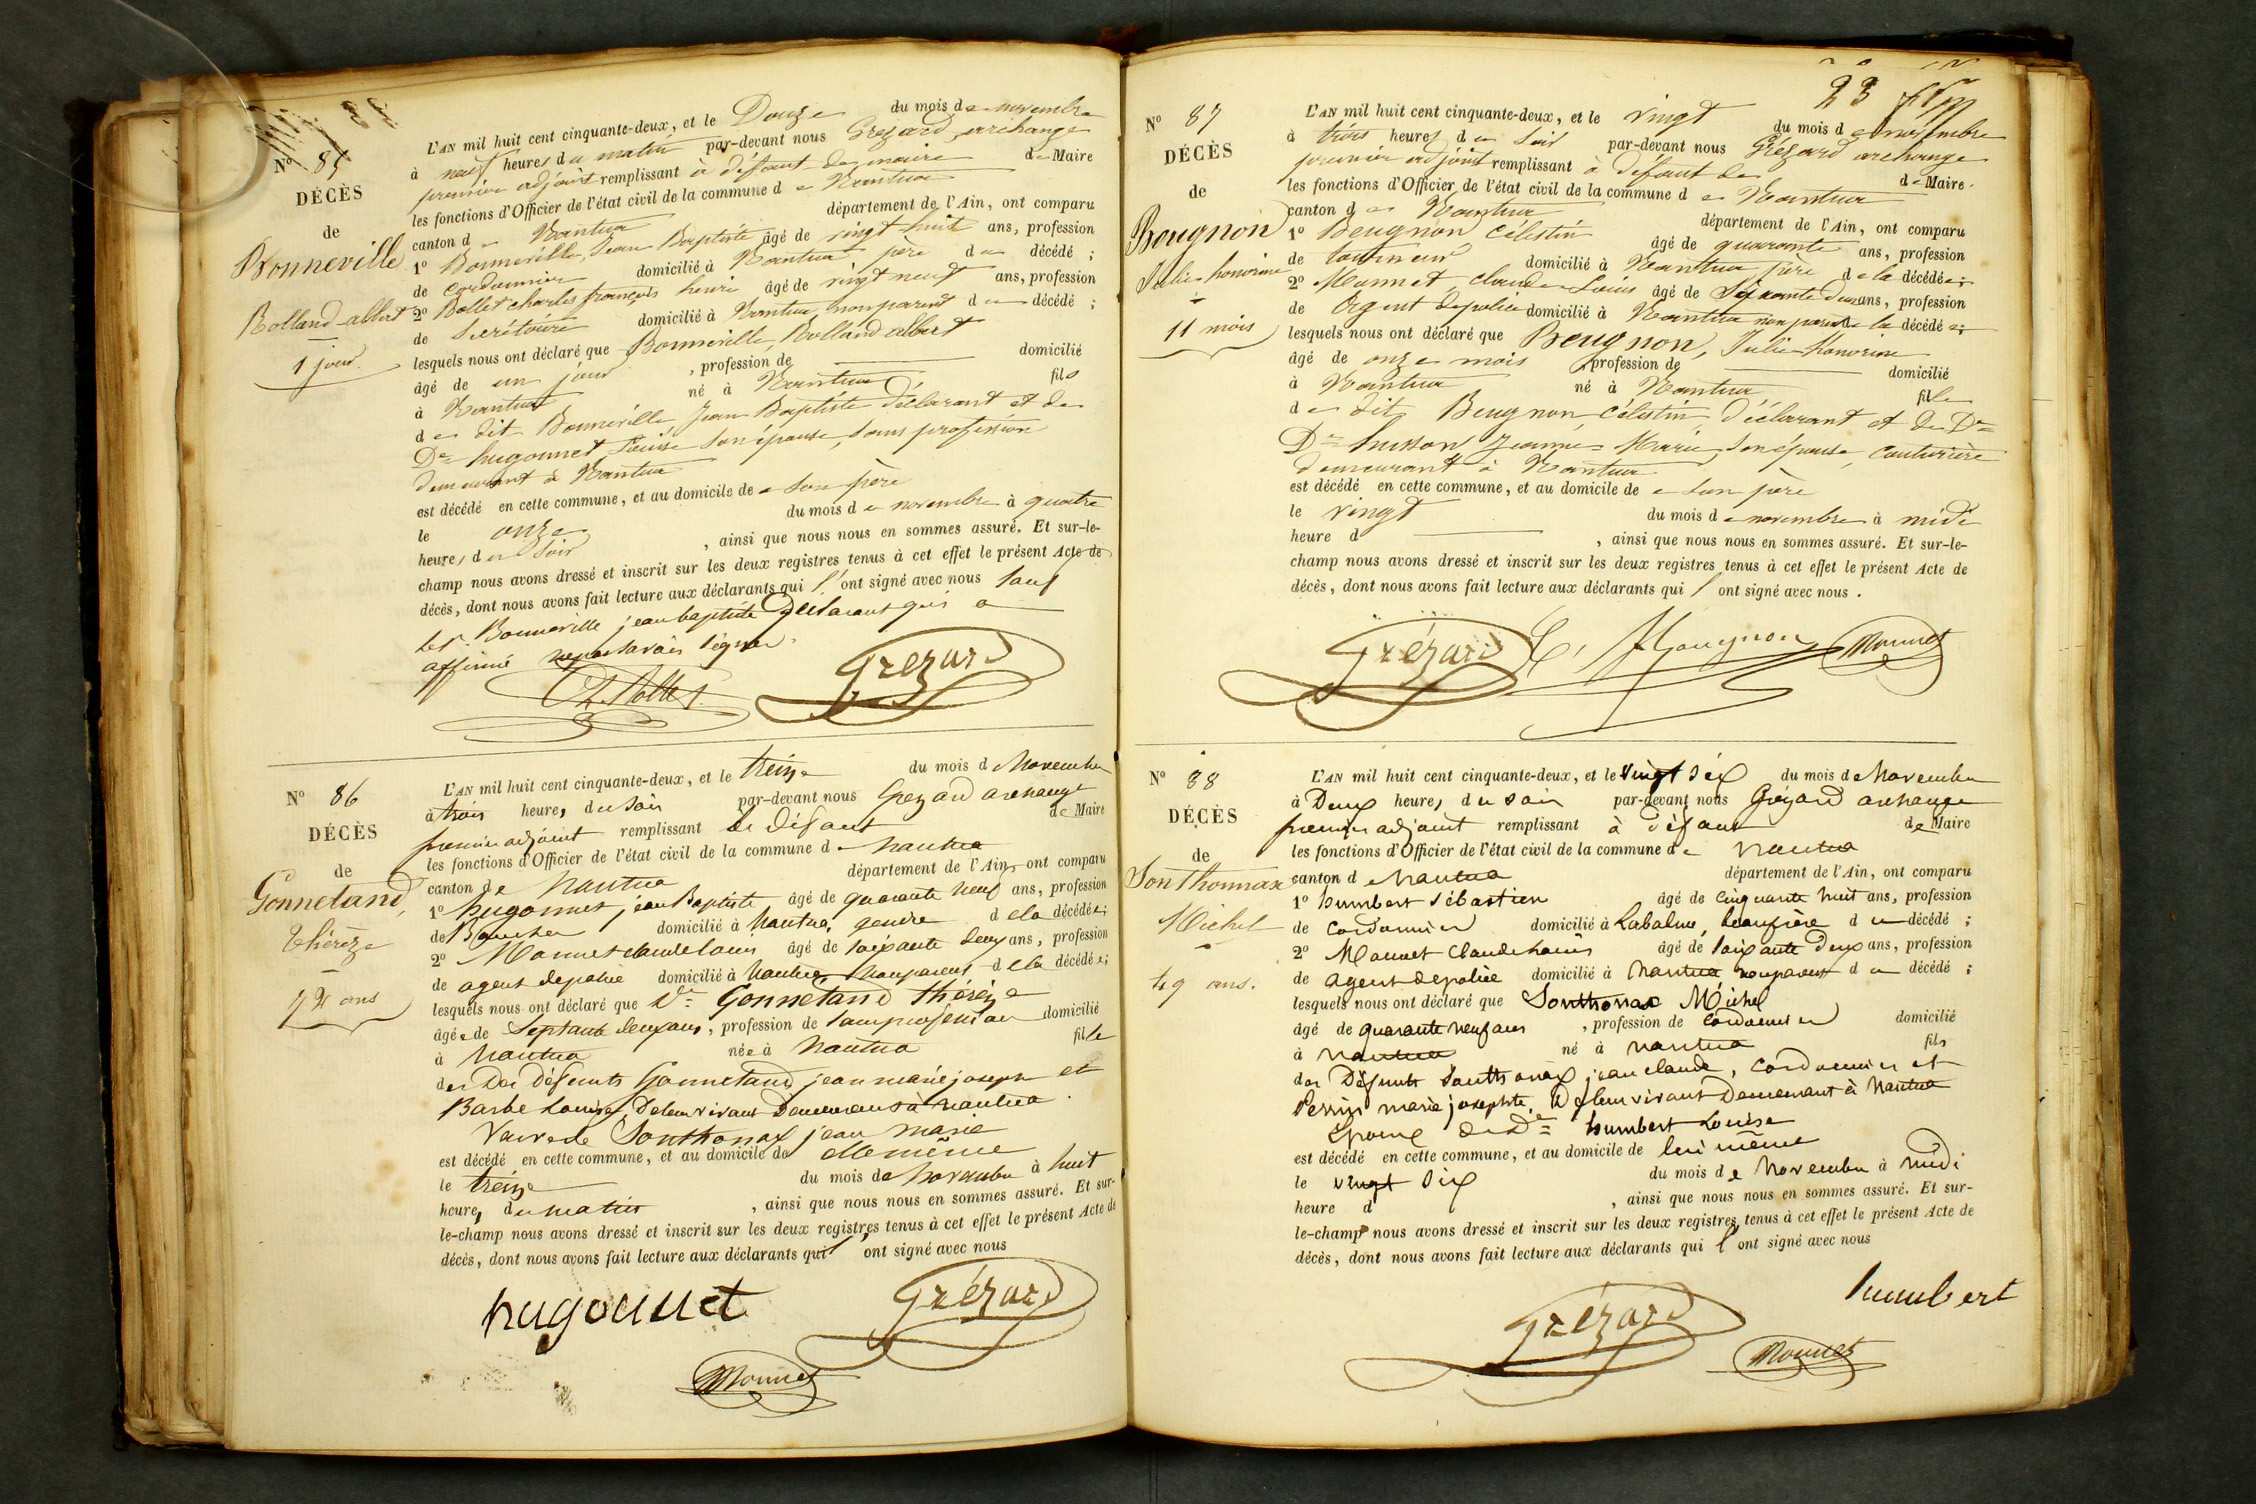 N° 85
DÉCÈS
de
Bonneville
Rolland albert
1 jour.
L'AN mil huit cent cinquante-deux, et le Douze du mois de novembre
à neuf heures du matin par-devant nous Grézard archange
premier adjoint remplissant à défaut de maire de Maire
les fonctions d'Officier de l'état civil de la commune de Nantua
canton de Nantua département de l'Ain, ont comparu
1° Bonneville, Jean Baptiste âgé de vingt huit ans, profession
de cordonnier domicilié à Nantua père du décédé ;
2° Rollet charles françois henri âgé de vingt neuf ans, profession
de Secrétaire domicilié à Nantua non parent du décédé ;
lesquels nous ont déclaré que Bonneville, Rolland albert
âgé de un jour , profession de domicilié
à Nantua né à Nantua fils
de dit Bonneville Jean Baptiste déclarant et de
De hugonnet Louise son épouse, sans profession
demeurant à Nantua
est décédé en cette commune, et au domicile de son père
le onze du mois de novembre à quatre
heures du Soir , ainsi que nous nous en sommes assuré. Et sur-le-
champ nous avons dressé et inscrit sur les deux registres tenus à cet effet le présent Acte de
décès, dont nous avons fait lecture aux déclarants qui l'ont signé avec nous sauf
le Sr Bonneville jean baptiste déclarant qui a
affirmé ne pas savoir signer.
Ch. Rollet Grézard
N° 86
DÉCÈS
de
Gonnetand,
thérèze
72 ans
L'AN mil huit cent cinquante-deux, et le treize du mois de Novembre
à trois heures du soir par-devant nous Grezard archange
premier adjoint remplissant à défaut de Maire
les fonctions d'Officier de l'état civil de la commune de nantua
canton de Nantua département de l'Ain, ont comparu
1° hugonnet jean Baptiste âgé de quarante neuf ans, profession
de Boucher domicilié à Nantua, gendre de la décédée;
2° Monnet claude louis âgé de soixante deux ans, profession
de agent de police domicilié à Nantua, non parent de la décédée;
lesquels nous ont déclaré que De Gonnetand thérèze
âgée de septante deux ans, profession de sans profession domicilié
à Nantua née à Nantua fille
des Des défunts Gonnetand jean marie joseph et
Barbe Louise, de leur vivant demeurant à nantua.
Veuve de Sonthonax jean marie
est décédé en cette commune, et au domicile de elle même
le treize du mois de novembre à huit
heures du matin , ainsi que nous nous en sommes assuré. Et sur-
le-champ nous avons dressé et inscrit sur les deux registres tenus à cet effet le présent Acte de
décès, dont nous avons fait lecture aux déclarants qui l'ont signé avec nous
hugonnet Grézard
Monnet
23
N° 87
DÉCÈS
de
Beugnon
Julie honorine
11 mois
L'AN mil huit cent cinquante-deux, et le vingt du mois de novembre
à trois heures du soir par-devant nous Grézard archange
premier adjoint remplissant à défaut de de Maire.
les fonctions d'Officier de l'état civil de la commune de Nantua
canton de Nantua département de l'Ain, ont comparu
1° Beugnon Célestin âgé de quarante ans, profession
de tourneur domicilié à Nantua père de la décédée;
2° Monnet, claude Louis âgé de Soixante deux ans, profession
de Agent de police domicilié à Nantua non parent de la décédée;
lesquels nous ont déclaré que Beugnon, Julie honorine
âgé de onze mois , profession de domicilié
à Nantua né à Nantua fille
de dit Beugnon, Célestin, déclarant et de De
De husson Jeanne Marie, son épouse, couturière
demeurant à Nantua
est décédé en cette commune, et au domicile de son père
le vingt du mois de novembre à midi
heure d , ainsi que nous nous en sommes assuré. Et sur-le-
champ nous avons dressé et inscrit sur les deux registres tenus à cet effet le présent Acte de
décès, dont nous avons fait lecture aux déclarants qui l'ont signé avec nous.
Grézard Monnet
N° 88
DÉCÈS
de
Sonthonnax
Michel
49 ans.
L'AN mil huit cent cinquante-deux, et le vingt six du mois de Novembre
à Deux heures du soir par-devant nous Grézard archange
premier adjoint remplissant à défaut de Maire
les fonctions d'Officier de l'état civil de la commune de nantua
canton de Nantua département de l'Ain, ont comparu
1° humbert Sébastien âgé de cinquante huit ans, profession
de cordonnier domicilié à Labalme, beaufrère du décédé ;
2° Monnet Claude Louis âgé de soixante deux ans, profession
de agent de police domicilié à Nantua non parent du décédé ;
lesquels nous ont déclaré que Sonthonax Michel
âgé de quarante neuf ans , profession de cordonnier domicilié
à nantua né à nantua fils
des Défunts Sonthonax jean claude, cordonnier et
Perrin marie josephte, de leur vivant Demeurant à Nantua
Epoux de De humbert Louise
est décédé en cette commune, et au domicile de lui même
le vingt six du mois de Novembre à midi
heure d , ainsi que nous nous en sommes assuré. Et sur-
le-champ nous avons dressé et inscrit sur les deux registres tenus à cet effet le présent Acte de
décès, dont nous avons fait lecture aux déclarants qui l'ont signé avec nous
humbert
Grézard
Monnet